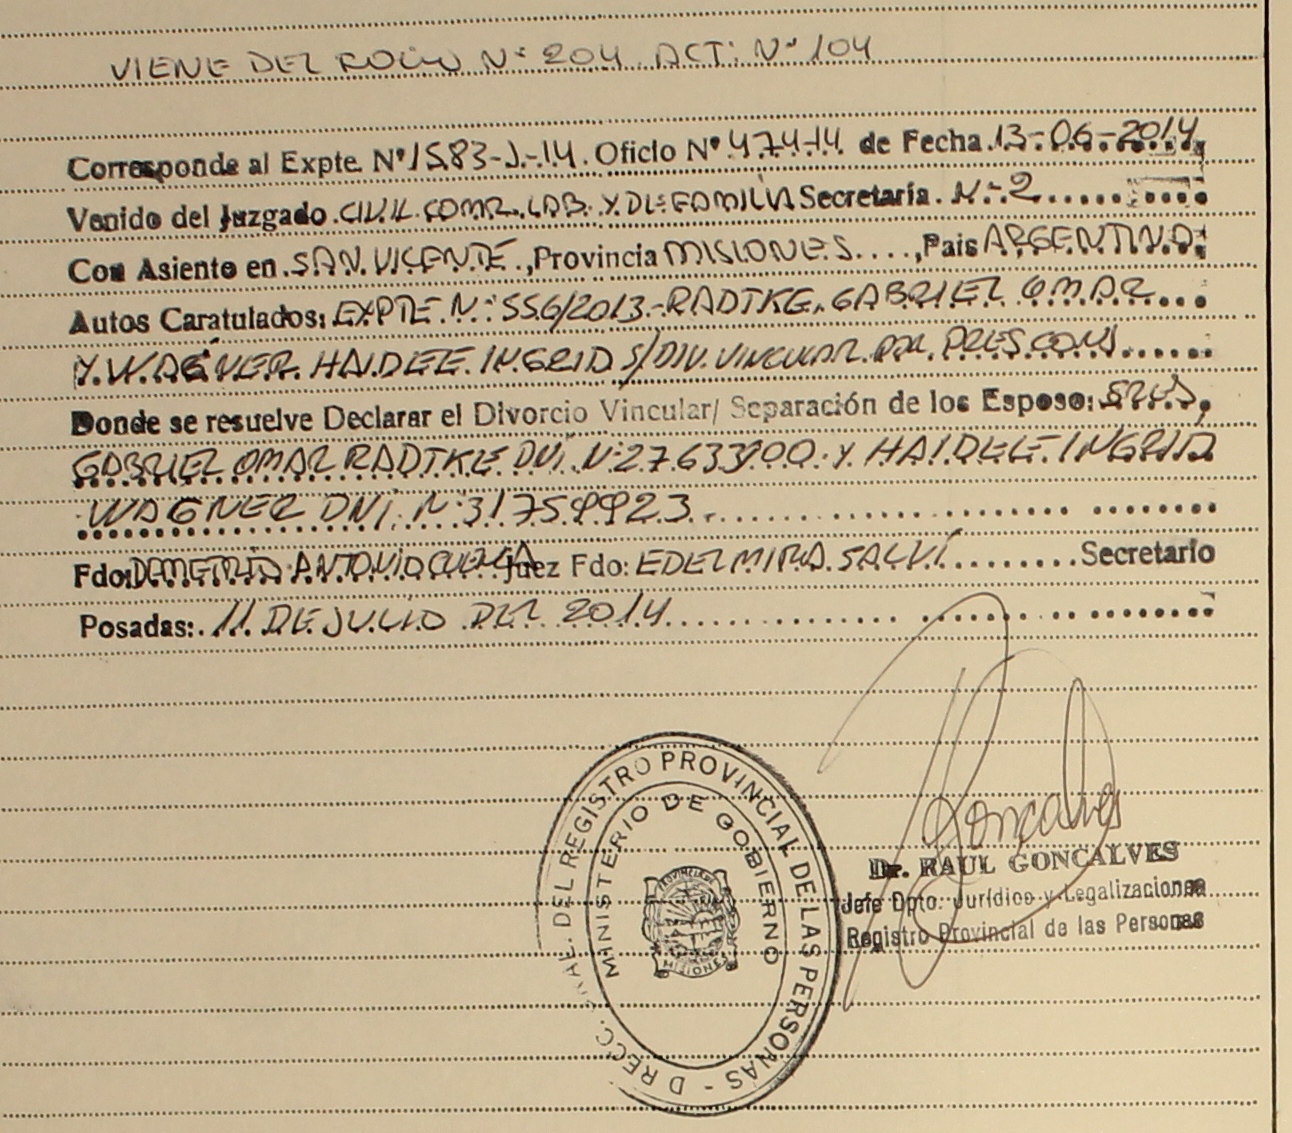 VIENE DEL FOLIO N° 204 ACT: N° 104
Corresponde al Expte. N° 1583-J-14. Oficio N° 474-14 de Fecha 13-06-2014,
Venido del Juzgado CIVIL. COMR. LAB. Y DE FAMILIA Secretaría. N: 2
Con Asiento en SAN VICENTE, Provincia MISIONES, País ARGENTINA;
Autos Caratulados: EXPTE N: 556/2013-RADTKE, GABRIEL OMAR
Y WAGNER HAIDEE INGRID S/DIV. VINCULAR POR PRES. CONJ.
Donde se resuelve Declarar el Divorcio Vincular/ Separación de los Esposo: SRES,
GABRIEL OMAR RADTKE DNI N: 27.633.900 Y HAIDEE INGRID
WAGNER DNI. N: 31759923
Fdo: DEMETRIO ANTONIO Juez Fdo: EDELMIRA SALVI Secretario
Posadas: 11 DE JULIO DEL 2014
DIRECC. GRAL. DEL REGISTRO PROVINCIAL DE LAS PERSONAS -
MINISTERIO DE GOBIERNO
PROVINCIA DE
MISIONES
Goncalves
Dr. RAUL GONCALVES
Jefe Dpto. Jurídico y Legalizaciones
Registro Provincial de las Personas